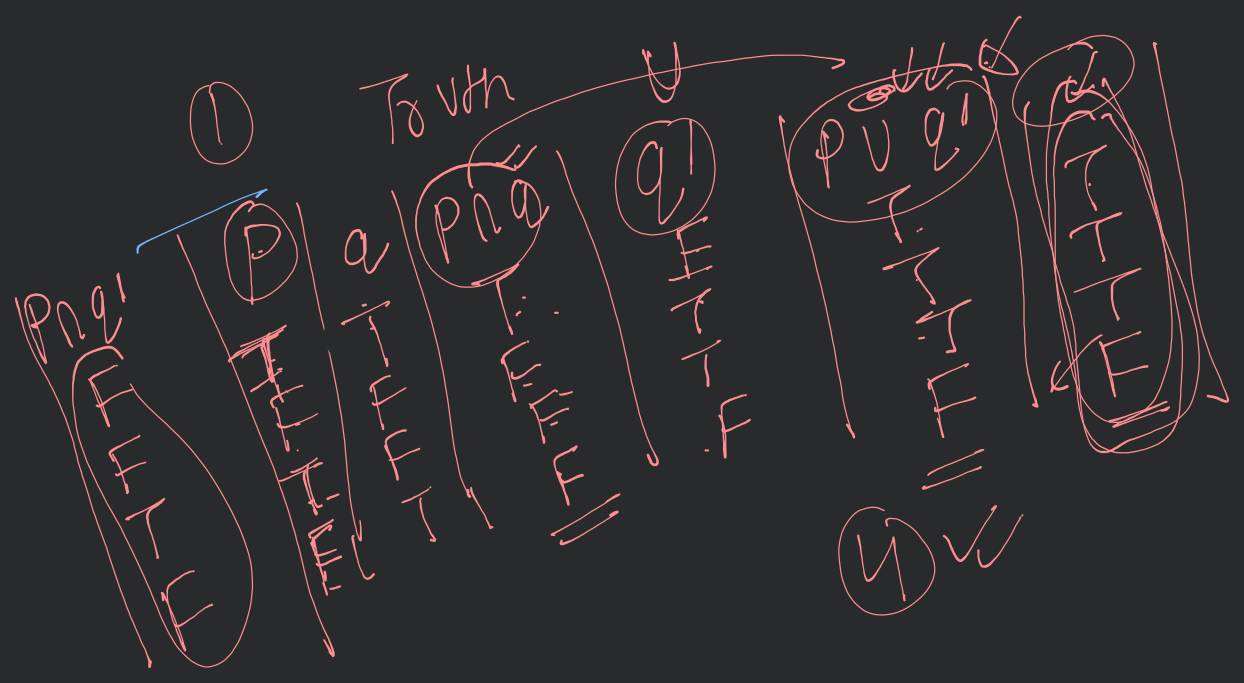 1 Truth U
P∩q' P q P∩q q' P∪q'
F T T T T T
F F F F T T T
T T F F T T T
F F T F F F F
4